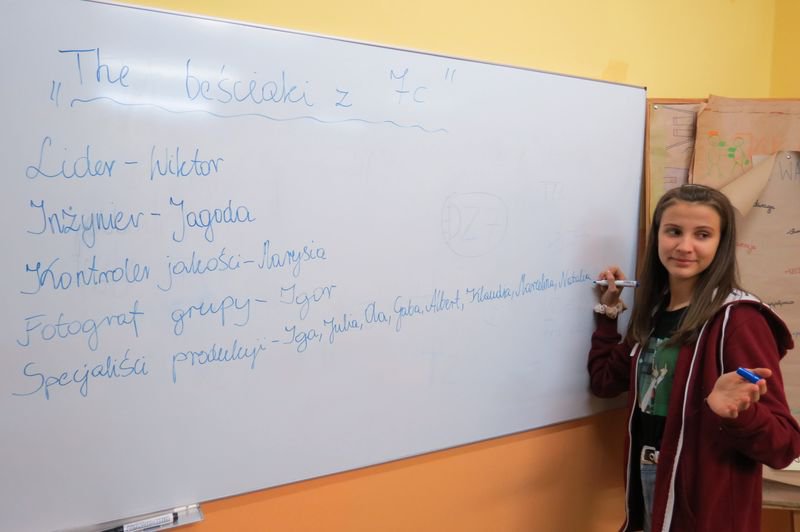 „The beściaki z 7c"
Lider - Wiktor
Inżynier - Jagoda
Kontroler jakości - Marysia
Fotograf grupy - Igor
Specjaliści produkcji - Iga, Julia, Ola, Gaba, Albert, Klaudia, Marcelina, Natalia